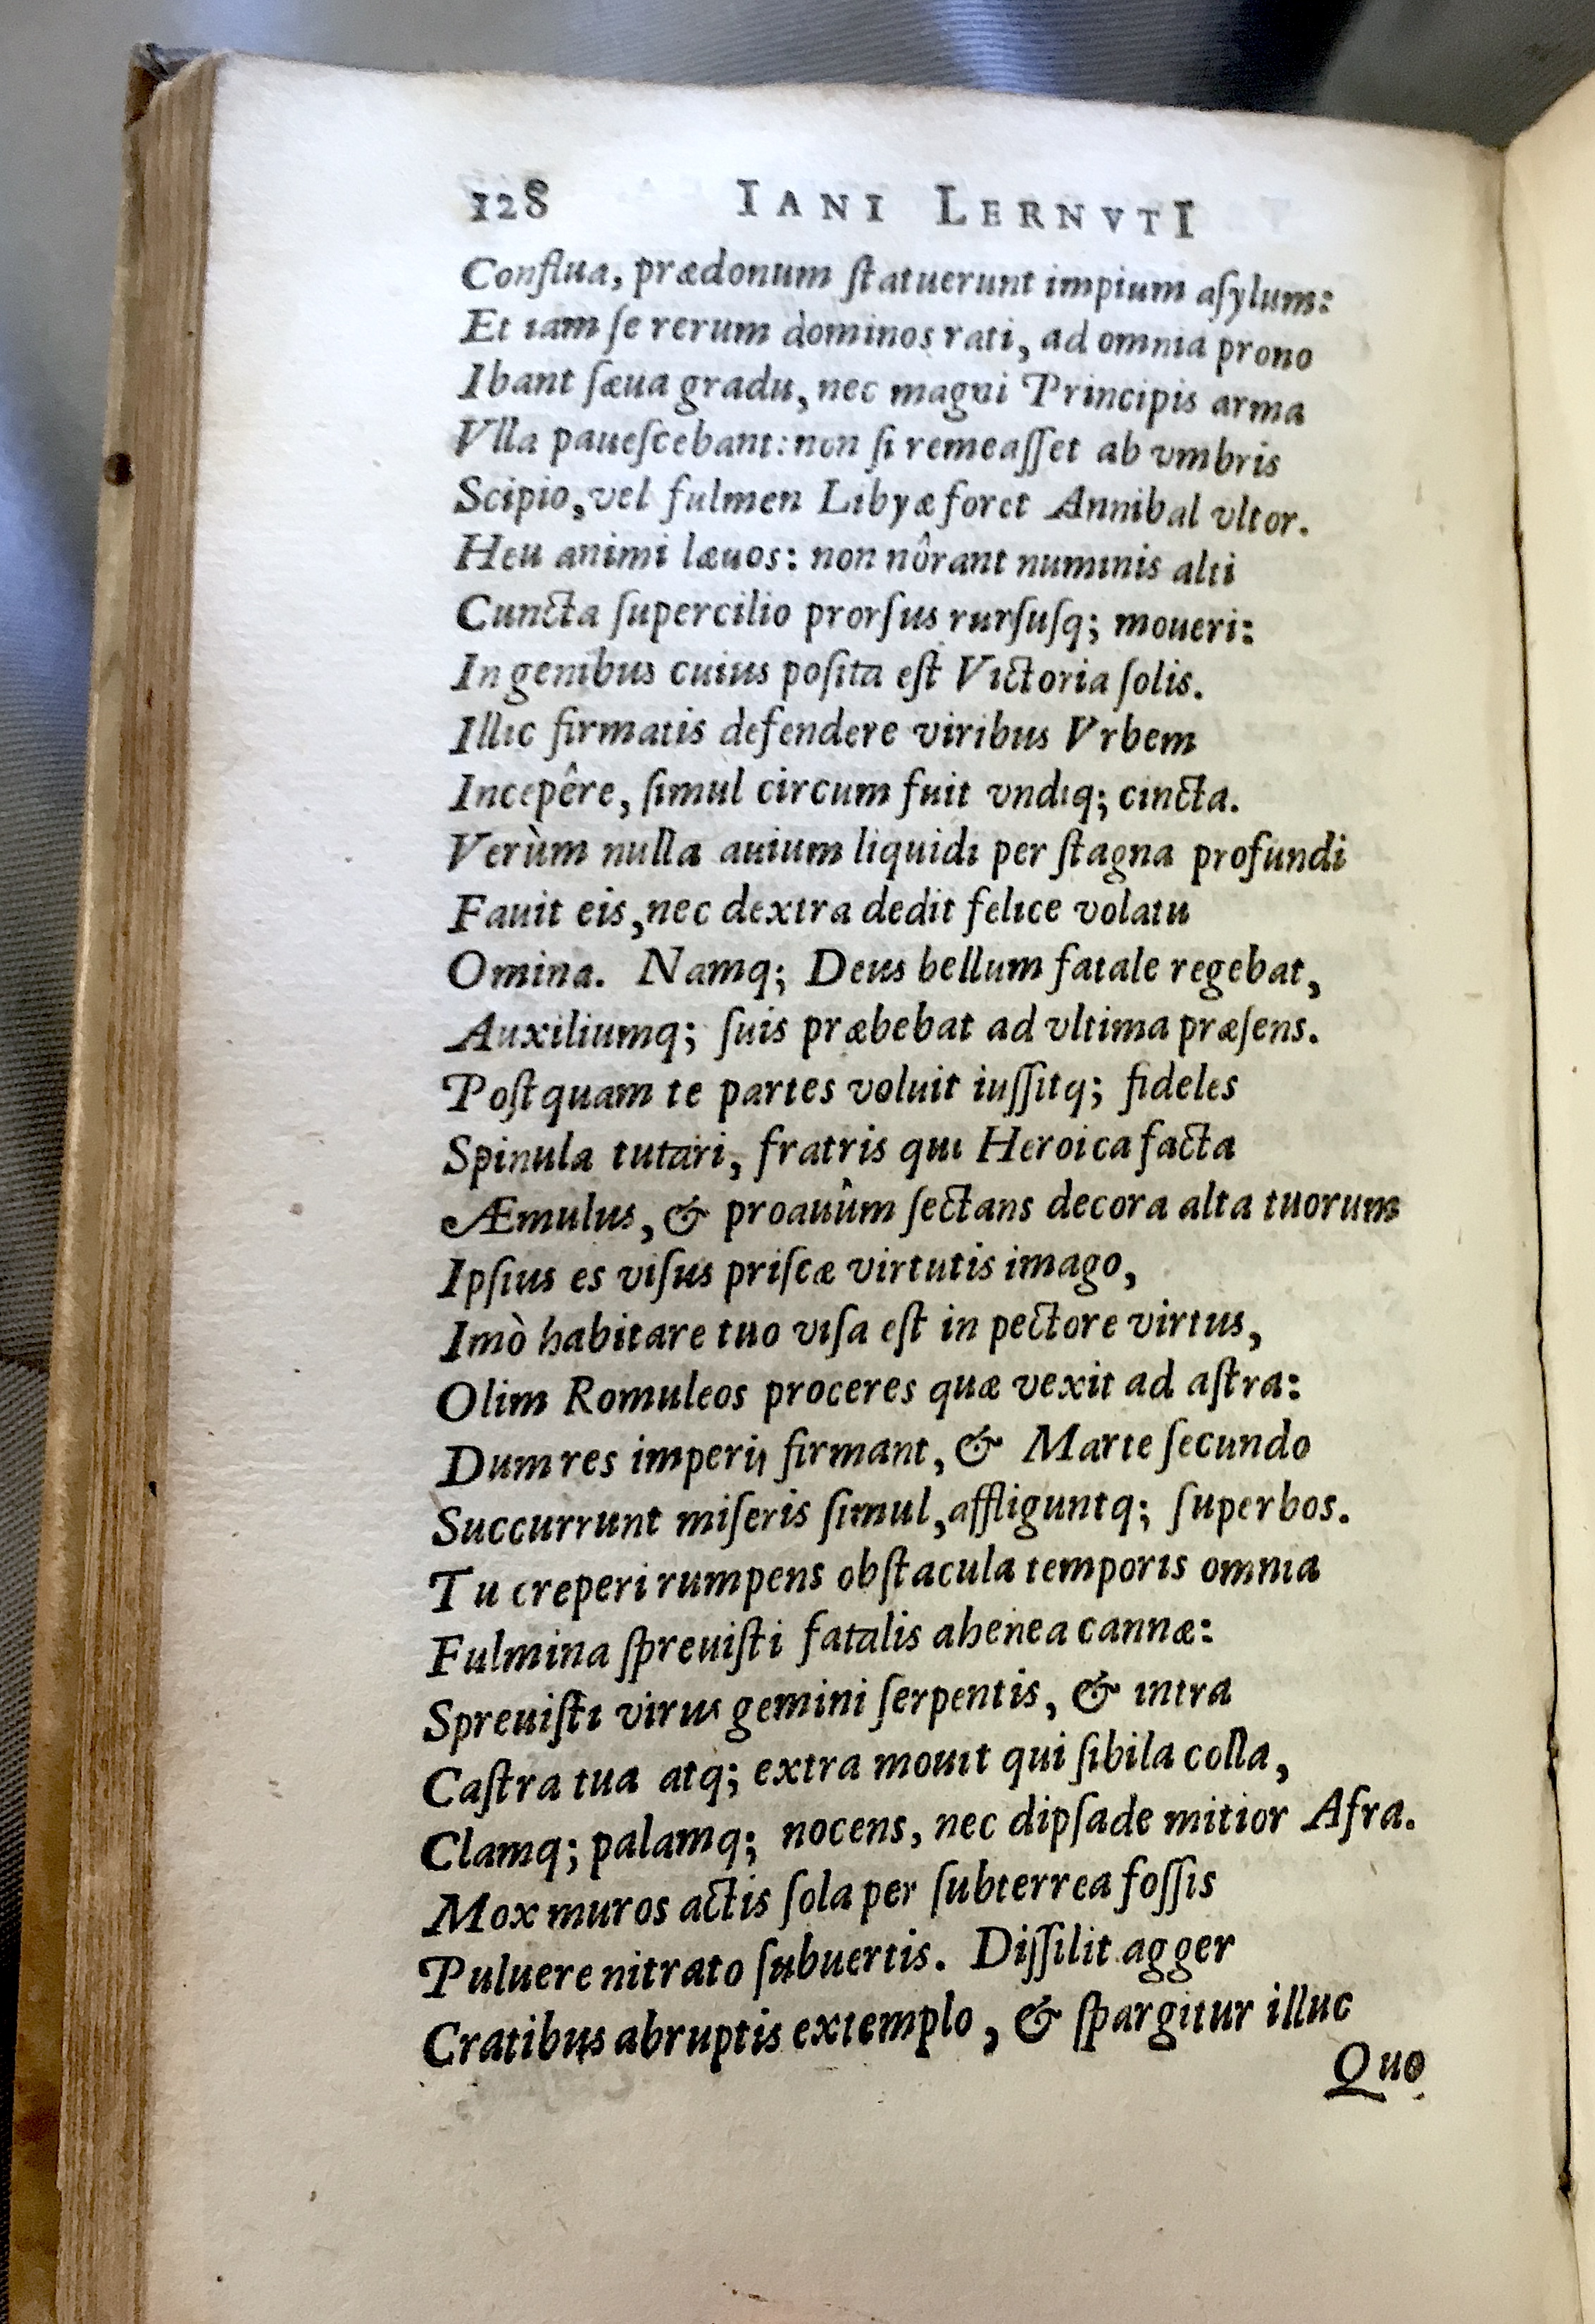 128 IANI LERNVTI
Conflua, prædonum ſtatuerunt impium aſylum:
Et iam ſe rerum dominos rati, ad omnia prono
Ibant ſæua gradu, nec magni Principis arma
Vlla paueſcebant: non ſi remeaſſet ab vmbris
Scipio, vel fulmen Libyæ foret Annibal vltor.
Heu animi læuos: non nôrant numinis alti
Cuncta ſupercilio prorſus rurſuſq; moueri:
In genibus cuius poſita eſt Victoria ſolis.
Illic firmatis defendere viribus Vrbem
Incepêre, ſimul circum fuit vndiq; cincta.
Verùm nulla auium liquidi per ſtagna profundi
Fauit eis, nec dextra dedit felice volatu
Omina. Namq; Deus bellum fatale regebat,
Auxiliumq; ſuis præbebat ad vltima præſens.
Poſtquam te partes voluit iuſſitq; fideles
Spinula tutari, fratris qui Heroica facta
Æmulus, & proauûm ſectans decora alta tuorum
Ipſius es viſus priſcæ virtutis imago,
Imò habitare tuo viſa eſt in pectore virtus,
Olim Romuleos proceres quæ vexit ad aſtra:
Dum res imperij firmant, & Marte ſecundo
Succurrunt miſeris ſimul, affliguntq; ſuperbos.
Tu creperi rumpens obſtacula temporis omnia
Fulmina ſpreuiſti fatalis ahenea cannæ:
Spreuiſti virus gemini ſerpentis, & intra
Caſtra tua atq; extra mouit qui ſibila colla,
Clamq; palamq; nocens, nec dipſade mitior Afra.
Mox muros actis ſola per ſubterrea foſſis
Puluere nitrato ſubuertis. Diſſilit agger
Cratibus abruptis extemplo, & ſpargitur illuc
Quo